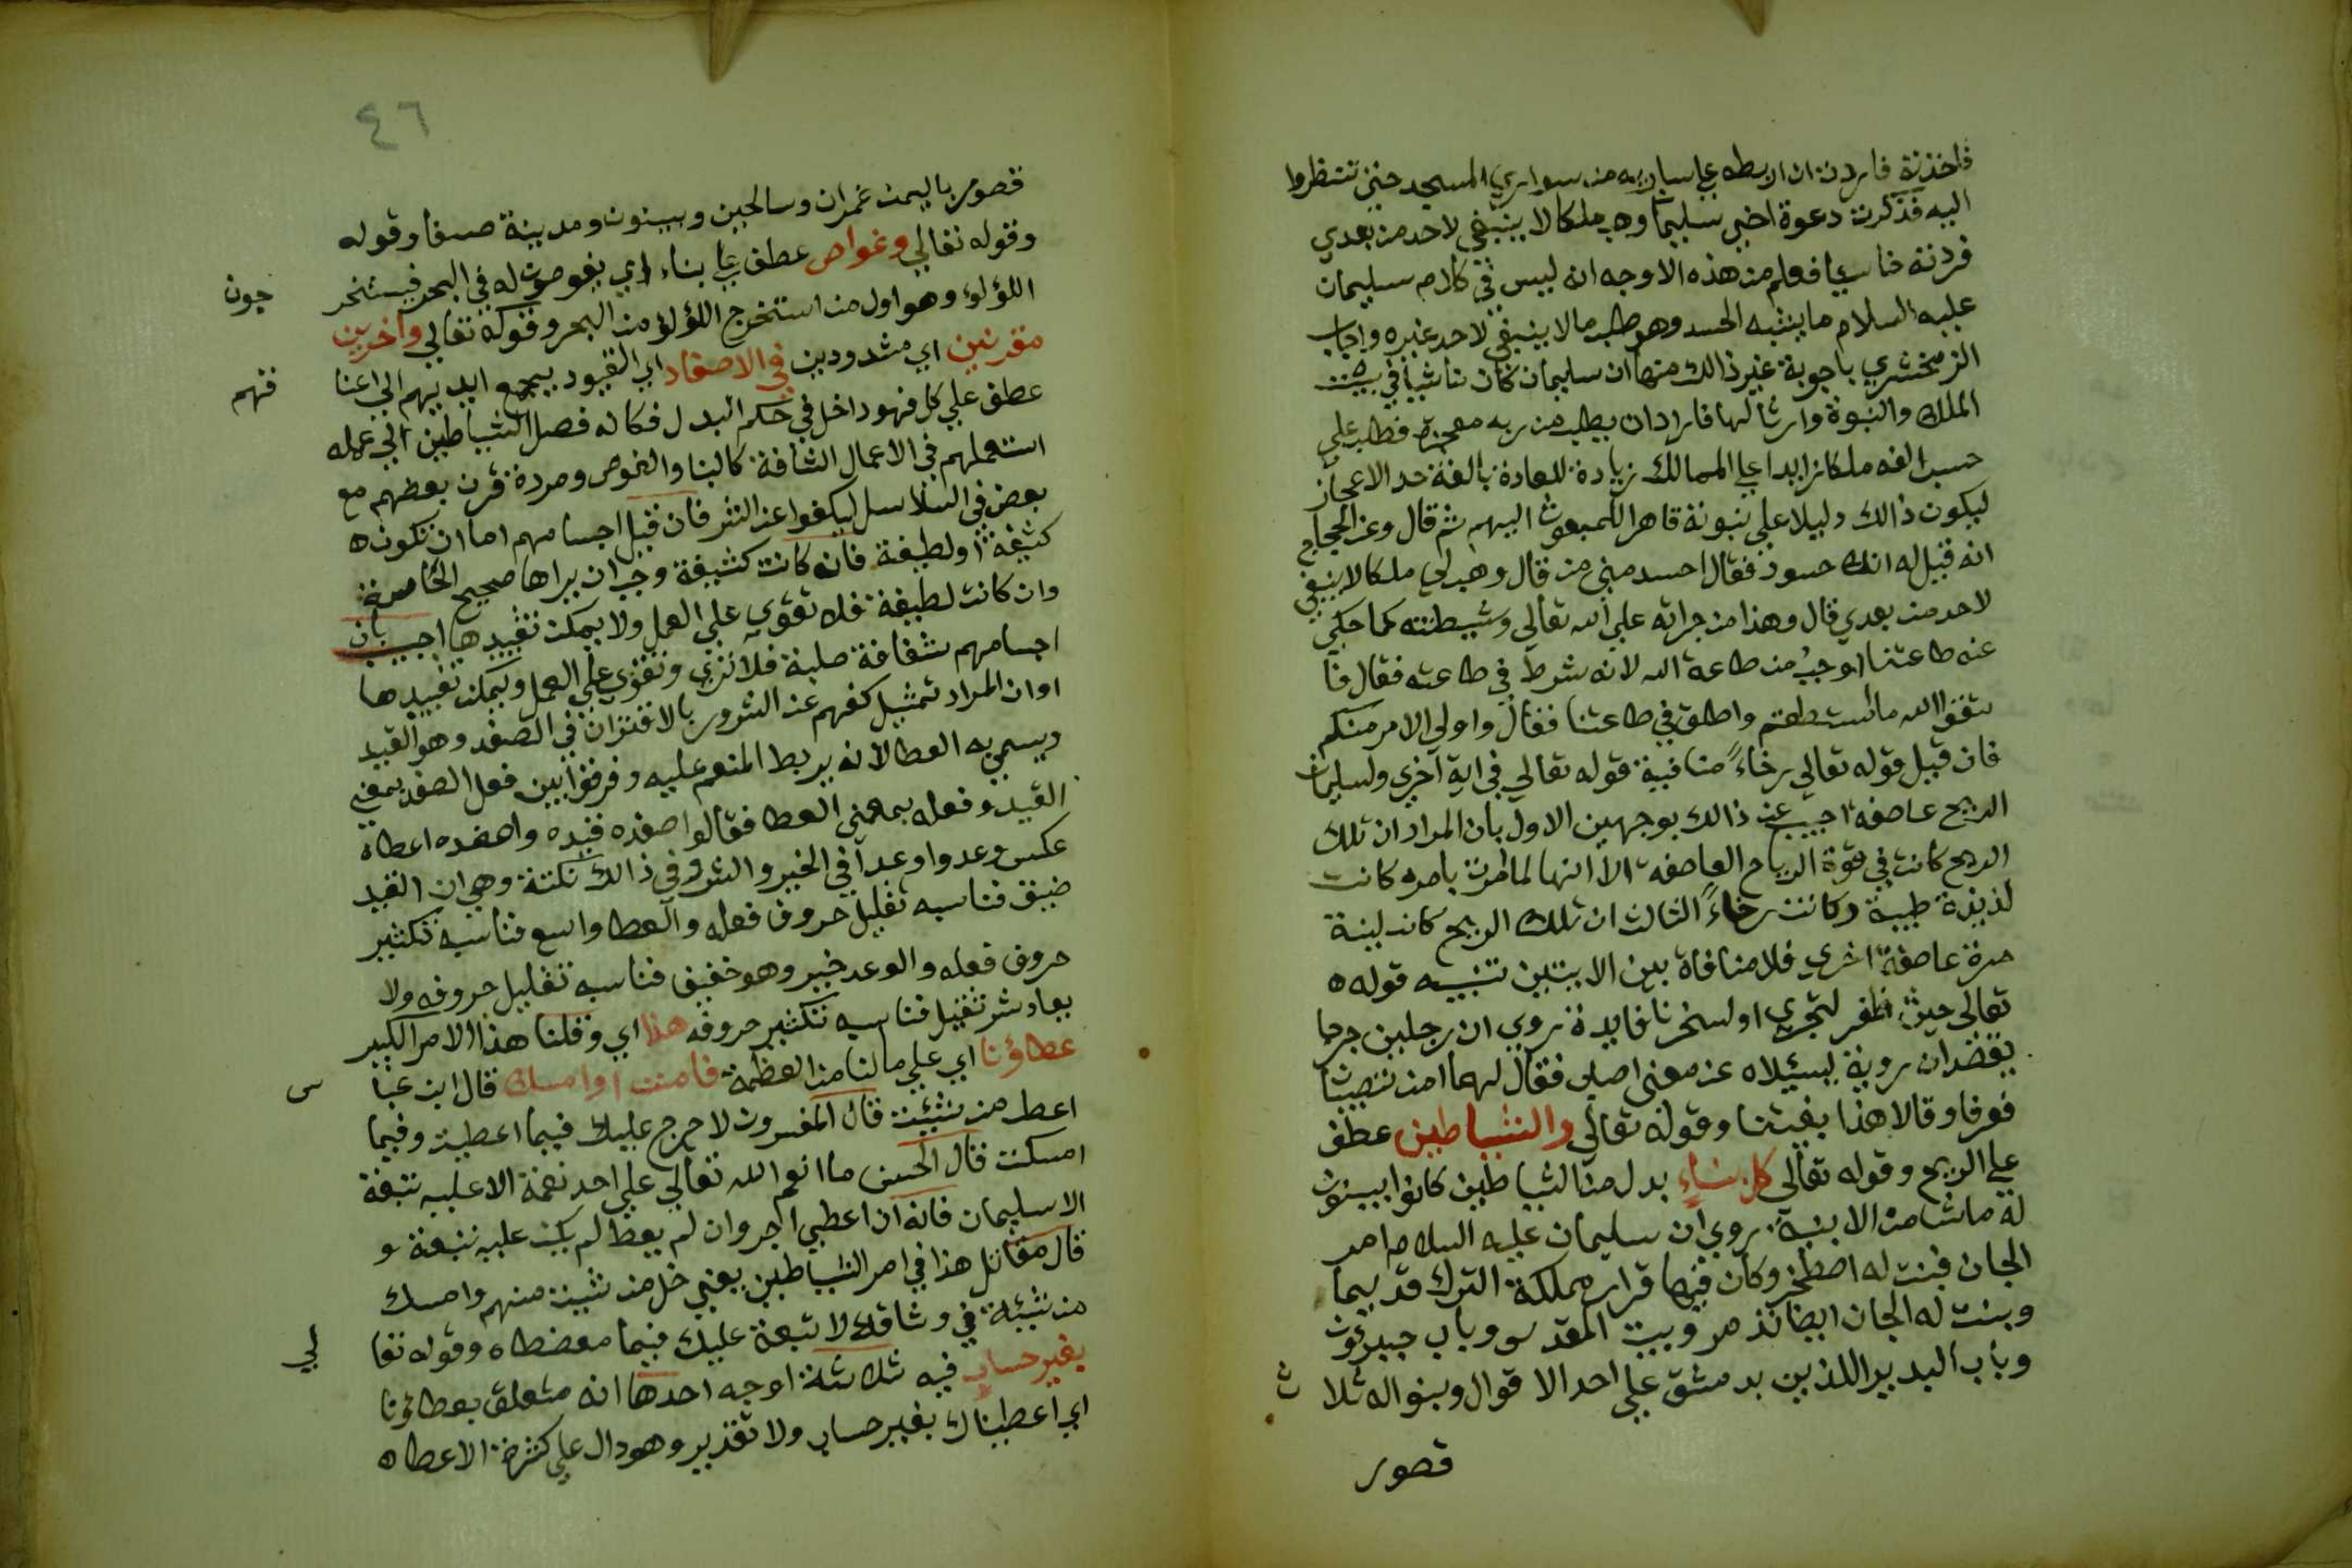 فاخذته فاردت ان اربطه علي سارية من سواري المسجد حتي تنظروا
اليه فذكرت دعوة اخي سليمان وهب ملكا لا ينبغي لاحد من بعدي
فردته خاسئا فعلم من هذه الاوجه انه ليس في كلام سليمان
عليه السلام ما يشبه الحسد وهو طلب مالا ينبغي لاحد غيره واجاب
الزمخشري باجوبة غير ذالك منها ان سليمان كان ناشيا في بيت
الملك والنبوة وارثا لها فاراد ان يطلب من ربه معجزة فطلب علي
حسب الفه ملكا زايدا علي الممالك زيادة للعادة بالغة حد الاعجاز
ليكون ذالك دليلا علي نبوته قاهرا للمبعوث اليهم ثم قال وعن الحجاج
انه قيل له انك حسود فقال احسد مني من قال وهب لي ملكا لا ينبغي
لاحد من بعدي قال وهذا من جراته علي الله تعالي وشيطنته كما حكي
عنه طاعتنا اوجب من طاعة الله لانه شرط في طاعته فقال فا
تقوا الله ما استطعتم واطلق في طاعتنا فقال واولي الامر منكم
فان قيل قوله تعالي رخاءً منافية قوله تعالي في اية آخري ولسليمان
الريح عاصفة اجيب عن ذالك بوجهين الاول بان المراد ان تلك
الريح كانت في قوة الرياح العاصفة الا انها لما امرت بامره كانت
لذيذة طيبة وكانت رخاءً الثالث ان تلك الريح كانت لينة
مرة عاصفة اخري فلا منافاة بين الايتين تنبيه قوله ه
تعالي حيث ظفر لتجري او لسخرنا فايدة روي ان رجلين خرجا
يقضدان روبة ليسئلاه عن معني اصاب فقال لهما امن تصيبا
فعرفا وقالا هذا بغيتنا وقوله تعالي والشياطين عطف
علي الريح وقوله تعالي كل بناءٍ بدل من الشياطين كانوا يبنون
له ما شا من الابنية روي ان سليمان عليه السلام امر
الجان فبنت له اصطخر وكان فيها قرار مملكة الترك قديما
وبنت له الجان ايضا تذمر وبيت المقدس وباب جيرون
وباب البديرا للذين بدمشق علي احد الاقوال وبنوا له ثلا
ث
قصور
٤٦
قصور باليمن غمدان وسالحين وبينون ومدينة صنعا وقوله
وقوله تعالي وغواص عطف علي بناء اي يغوصون له في البحر فيستخر
جون
اللؤلؤ وهو اول من استخرج اللؤلؤ من البحر وقوله تعالي وآخرين
مقرنين اي مشدودين في الاصفاد اي القيود بجمع ايديهم الي اعنا
قهم
عطف علي كل فهو داخل في حكم البدل فكانه فصل الشياطين الي عمله
استعملهم في الاعمال الشاقة كالبنا والغوص ومردة قرن بعضهم مع
بعض في السلاسل ليكفوا عن الشر فان قيل اجسامهم اما ان تكون ه
كثيفة او لطيفة فان كانت كثيفة وجب ان يراها صحيح الحاسة
وان كانت لطيفة فلا تقوي علي العمل ولا يمكن تقييدها اجيب بان
اجسامهم شفافة صلبة فلا تري وتقوي علي العمل ويمكن تقييدها
او ان المراد تمثيل كفهم عن الشرور بالاقتران في الصفد وهو القيد
ويسمي به العطا لانه يربط المنعم عليه وفرقوا بين فعل الصفد بمعني
القيد وفعله بمعني العطا فقالوا صفده قيده واصفده اعطاه
عكس وعد واوعد في الخير والشر وفي ذالك نكتة وهي ان القيد
ضيق فناسبه تقليل حروف فعله والعطا واسع فناسبه تكثير
حروف فعله والوعد خير وهو خفيف فناسبه تقليل حروفه ولا
يعاد شر ثقيل فناسبه تكثير حروفه هذا اي وقلنا هذا الامر الكبير
عطاؤنا اي علي مالنا من العظمة فامنن او امسك قال ابن عبا
س
اعط من شئت قال المفسرون لا حرج عليك فيما اعطيت وفيما
امسكت قال الحسن ما انعم الله تعالي علي احد نعمة الا عليه تبعة
الا سليمان فانه ان اعطي اجر وان لم يعط لم يكن عليه تبعة و
قال مقاتل هذا في امر الشياطين يعني خل من شئت منهم وامسك
من شئت في وثاقك لا تبعة عليك فيما معضطاه وقوله تعا
لي
بغير حساب فيه ثلاثة اوجه احدها انه متعلق بعطاؤنا
اي اعطيناك بغير حساب ولا تقدير وهو دال علي كثرة الاعطاه